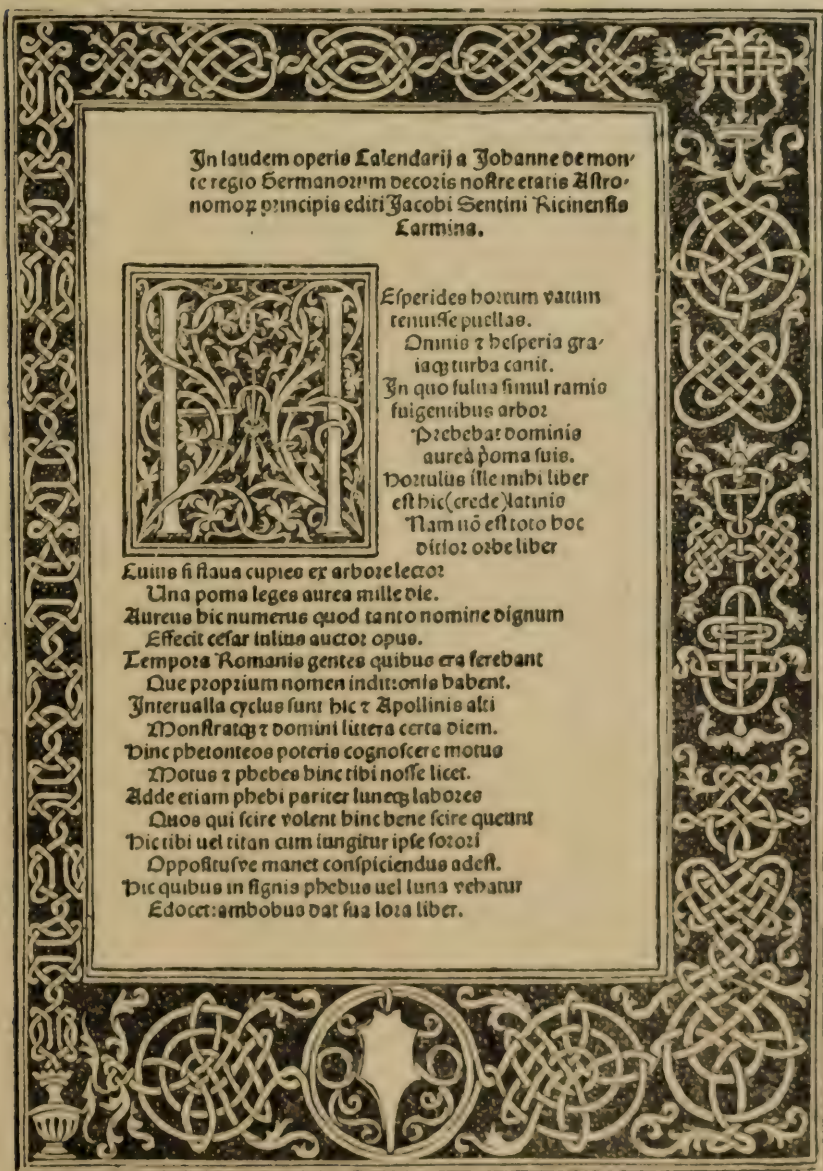 In laudem operis Calendarij a Johanne de mon-
te regio Germanorum decoris nostre etatis Astro-
nomoꝝ principis editi Jacobi Sentini Ricinensis
Carmina.
HEsperides hortum vatum
tenuisse puellas.
Omnis ⁊ hesperia gra-
iaqꝫ turba canit.
In quo fulua simul ramis
fulgentibus arbor
Prebebat dominis
aurea poma suis.
Hortulus ille mihi liber
est hic (crede) latinis
Nam nō est toto hoc
ditior orbe liber
Cuius si flaua cupies ex arbore lector
Una poma leges aurea mille die.
Aureus hic numerus quod tanto nomine dignum
Effecit cesar iulius auctor opus.
Tempora Romanis gentes quibus era ferebant
Que proprium nomen inditionis habent.
Interualla cyclus sunt hic ⁊ Apollinis alti
Monstratqꝫ ⁊ domini littera certa diem.
Hinc phetonteos poteris cognoscere motus
Motus ⁊ phebes hinc tibi nosse licet.
Adde etiam phebi pariter luneqꝫ labores
Quos qui scire volent hinc bene scire queunt
Hic tibi uel titan cum iungitur ipse sorori
Oppositusve manet conspiciendus adest.
Hic quibus in signis phebus uel luna vehatur
Edocet: ambobus dat sua lora liber.